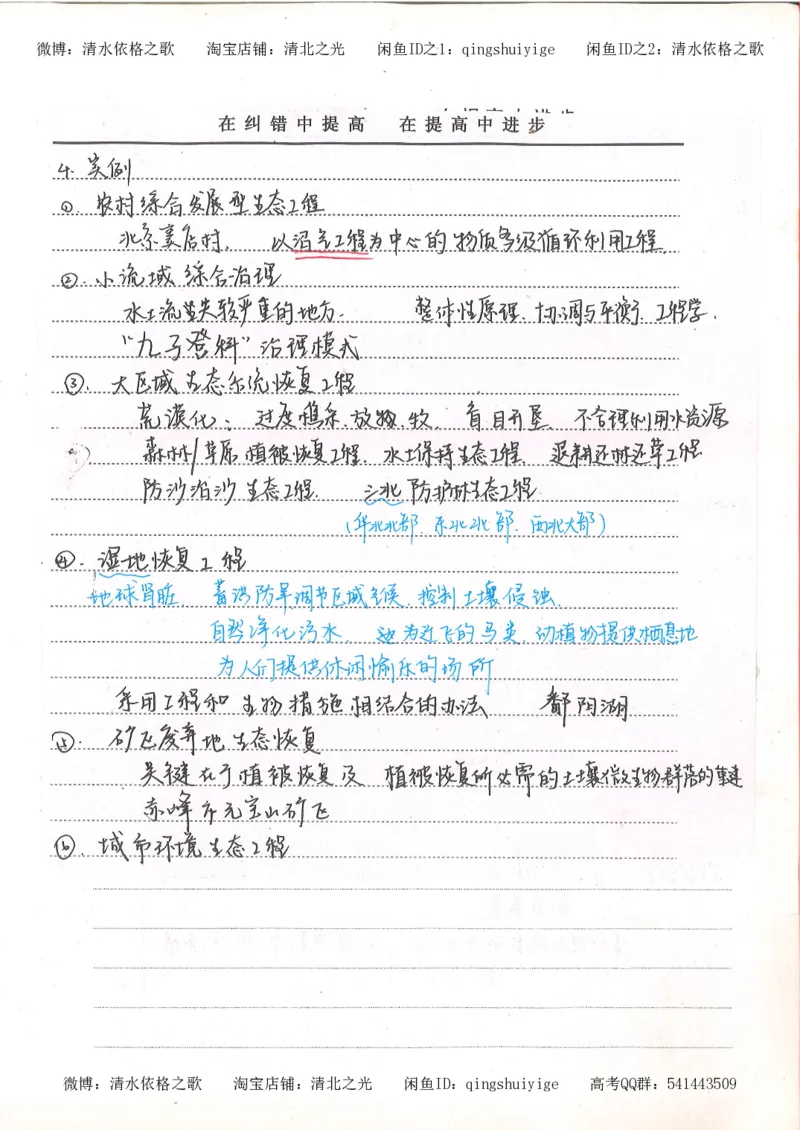 微博：清水依格之歌 淘宝店铺：清北之光 闲鱼ID之1：qingshuiyige 闲鱼ID之2：清水依格之歌
在纠错中提高 在提高中进步
4. 实例
①. 农村综合发展型生态工程
北京窦店村， 以沼气工程为中心的物质多级循环利用工程.
②. 小流域综合治理
水土流失较严重的地方. 整体性原理、协调与平衡、工程学.
“九子登科”治理模式
③. 大区域生态系统恢复工程
荒漠化： 过度樵采、放牧、 盲目开垦、不合理利用水资源
森林/草原植被恢复工程、水土保持生态工程、退耕还林还草工程
防沙治沙生态工程. 三北防护林生态工程
(华北北部、东北北部、西北大部)
④. 湿地恢复工程
地球肾脏. 蓄洪防旱调节区域气候、控制土壤侵蚀、
自然净化污水、 迁飞的鸟类、动植物提供栖息地
为人们提供休闲愉乐的场所
采用工程和生物措施相结合的办法 鄱阳湖
⑤. 矿区废弃地生态恢复
关键在于植被恢复及 植被恢复所必需的土壤微生物群落的重建
赤峰市元宝山矿区
⑥. 城市环境生态工程
微博：清水依格之歌 淘宝店铺：清北之光 闲鱼ID：qingshuiyige 高考QQ群：541443509